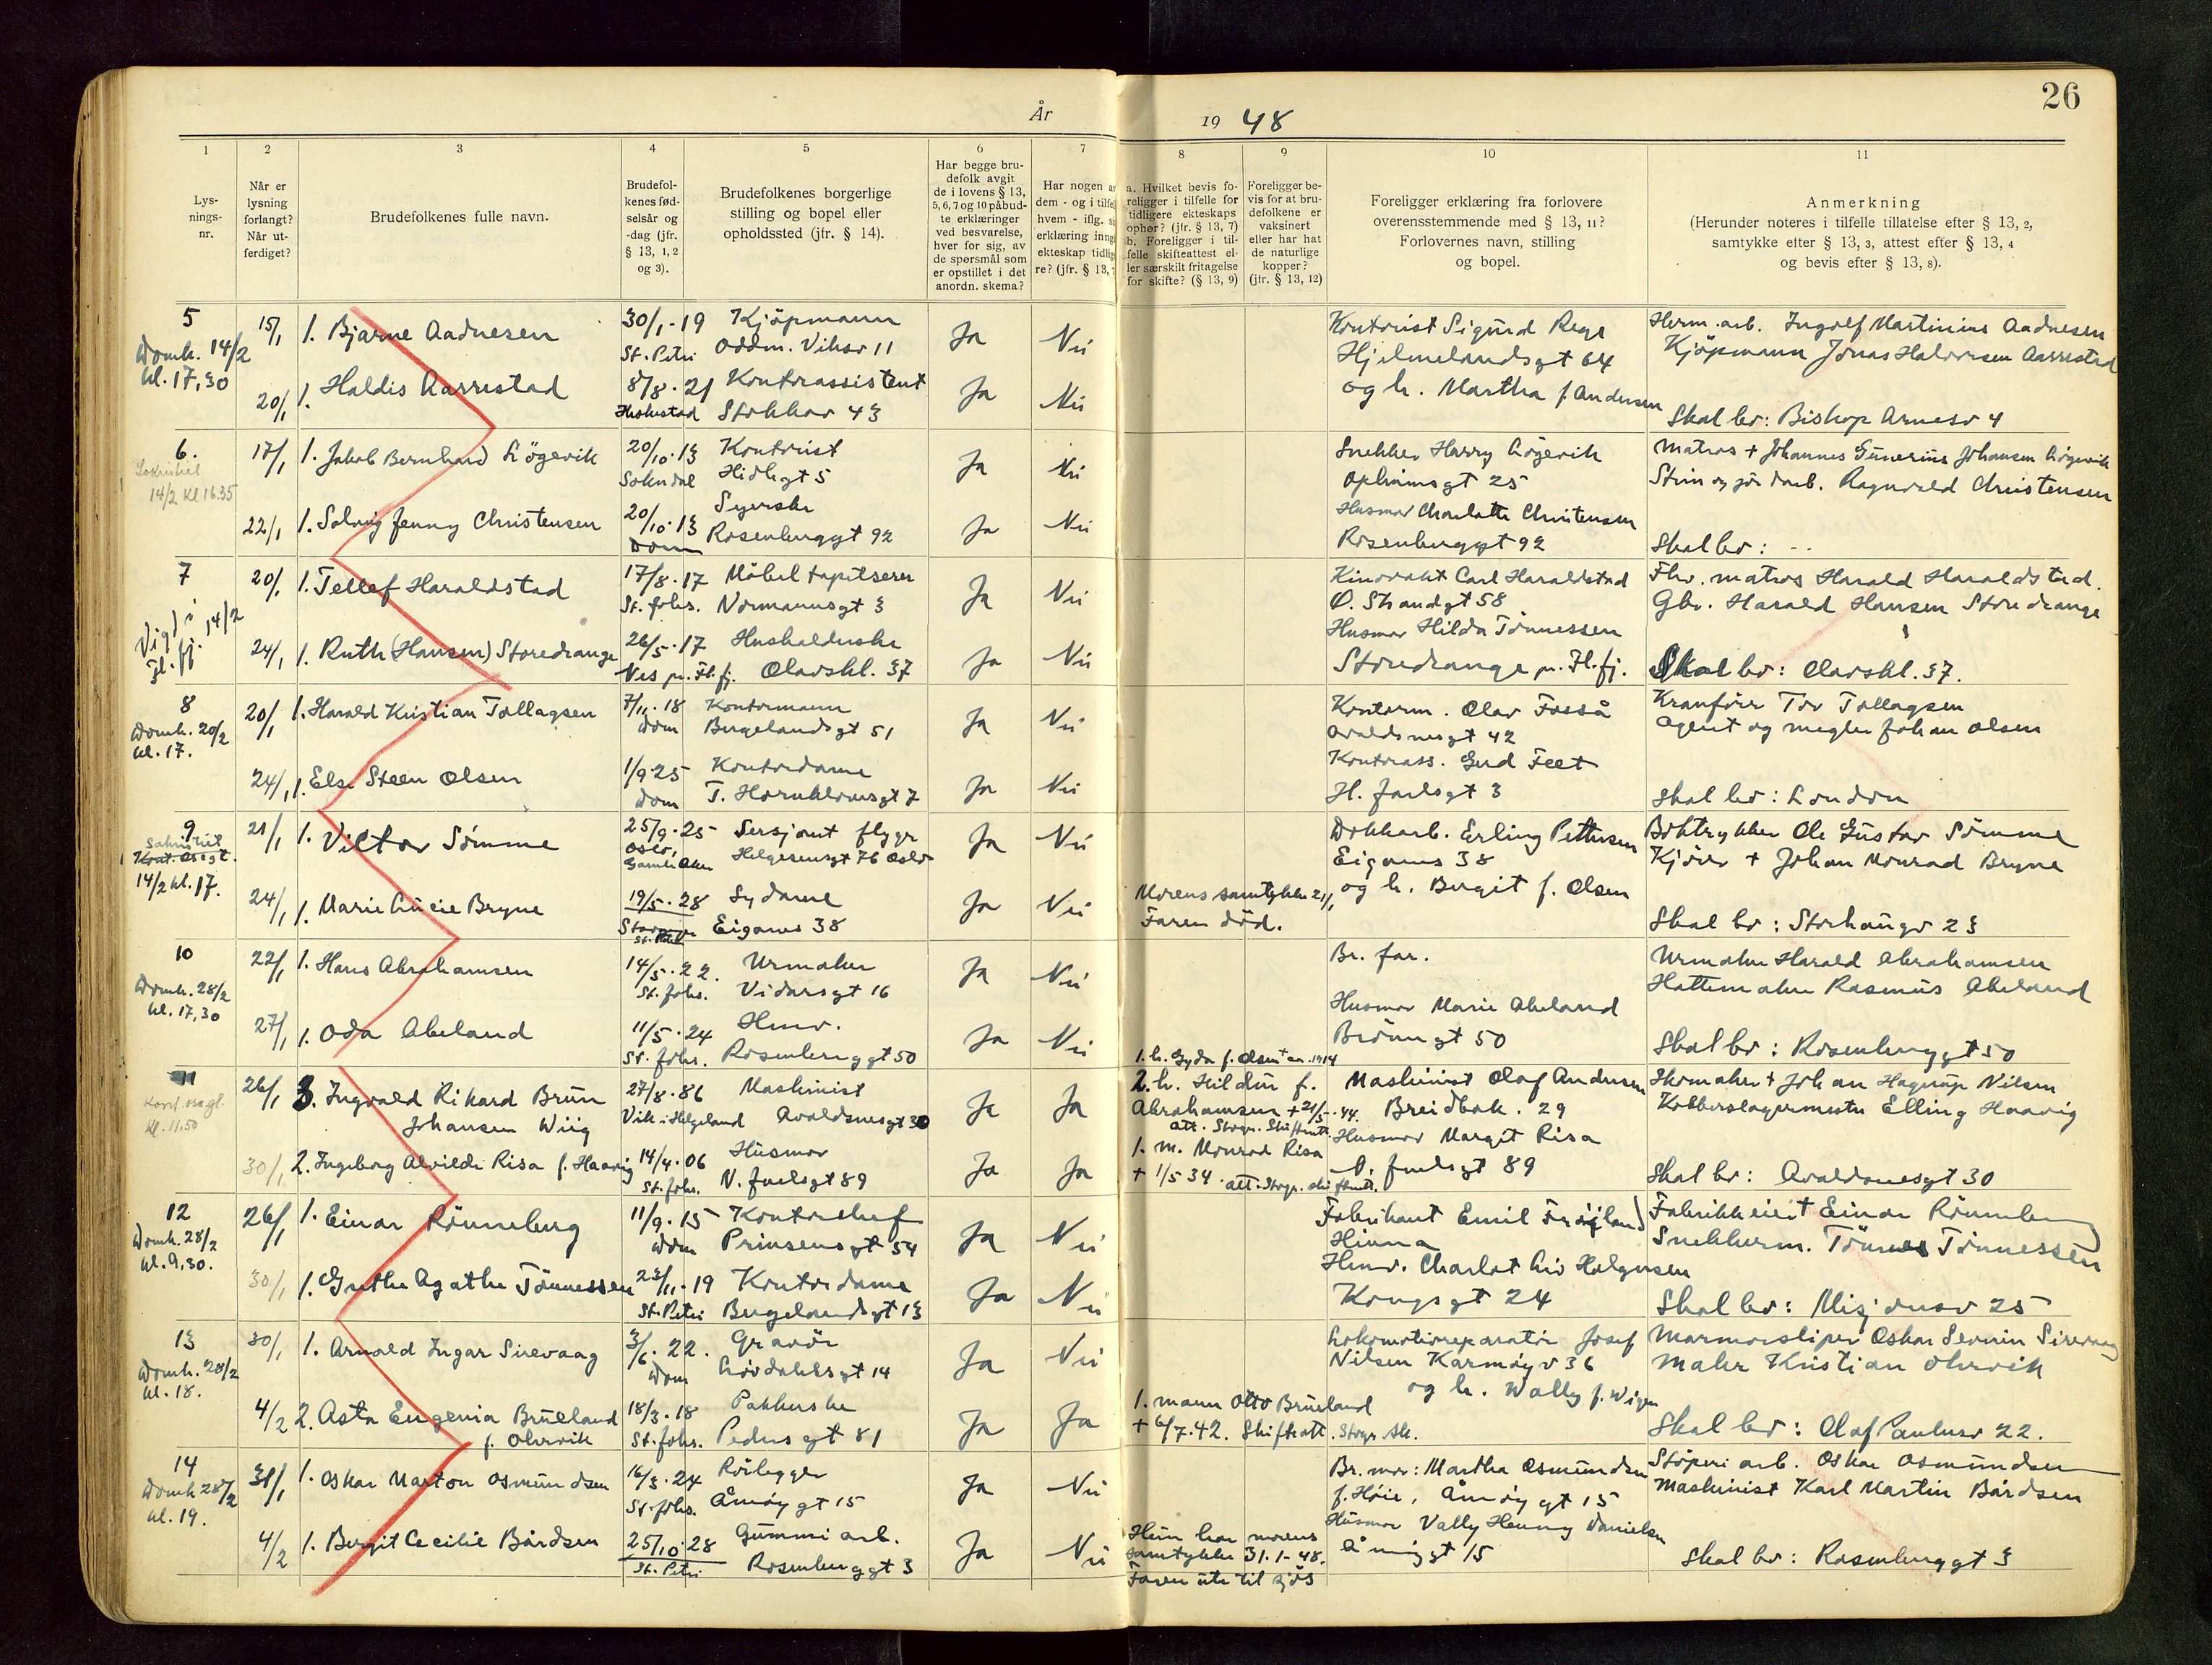 26
År 19 48
1
2
3
4
5
6
7
8
9
10
11
Lys-
nings-
nr.
Når er
lysning
forlangt?
Når ut-
ferdiget?
Brudefolkenes fulle navn.
Brudefol-
kenes fød-
selsår og
-dag (jfr.
§ 13, 1, 2
og 3).
Brudefolkenes borgerlige
stilling og bopel eller
opholdssted (jfr. § 14).
Har begge bru-
defolk avgit
de i lovens § 13,
5, 6, 7 og 10 påbud-
te erklæringer
ved besvarelse,
hver for sig, av
de spørsmål som
er opstillet i det
anordn. skema?
Har nogen a
dem - og i tilfel
hvem - iflg. si
erklæring inng
ekteskap tidlig
re? (jfr. § 13,
a. Hvilket bevis fo-
religger i tilfelle for
tidligere ekteskaps
ophør? (jfr. § 13, 7)
b. Foreligger i til-
felle skifteattest el-
ler særskilt fritagelse
for skifte? (§ 13, 9)
Foreligger be-
vis for at bru-
defolkene er
vaksinert
eller har hat
de naturlige
kopper?
(jfr. § 13, 12)
Foreligger erklæring fra forlovere
overensstemmende med § 13, 11?
Forlovernes navn, stilling
og bopel.
Anmerkning
(Herunder noteres i tilfelle tillatelse efter § 13, 2,
samtykke efter § 13, 3, attest efter § 13, 4
og bevis efter § 13, 8).
5
Domk. 14/2
kl. 17,30
15/1 1. Bjarne Aadnesen 30/1.19 Kjöpmann Ja Nei
St. Petri Oddm. Viksv 11
20/1 1. Haldis Aarrestad 8/8.21 Kontorassistent Ja Nei
Stokkav 43
Kontorist Sigurd Rege
Hjelmelandsgt 64
og h. Martha f Andersen
Herm. arb. Ingolf Martinius Aadnesen
Kjöpmann Jonas Halvorsen Aarrestad
Skal bo: Bishop Arnesv 4
6.
Sakristiet
14/2 Kl 16.35
17/1 1. Jakob Bernhard Lögevik 20/10.13 Kontorist Ja Nei
Sokndal Hidlegt 5
22/1 1. Solveig Jenny Christensen 20/10.13 Syerske Ja Nei
Dom Rosenberggt 92
Snekker Harry Lögevik
Opheimsgt 25
Husmor Charlotte Christensen
Rosenberggt 92
Matros + Johannes Gunerius Johansen Lögevik
Sten og jordarb. Ragnvald Christensen
Skal bo: --
7
Vigd i
Jl. fj. 14/2
20/1 1. Tellef Haraldstad 17/8.17 Möbeltapetserer Ja Nei
St. Johs. Normannsgt 3
24/1 1. Ruth (Hansen) Storedrange 26/5.17 Husholderske Ja Nei
Nes pr. Fl. fj. Olavskl. 37
Kinovakt Carl Haraldstad
Ö. Strandgt 58
Husmor Hilda Tönnessen
Storedrange pr. Fl. fj.
Fhv. matros Harald Haraldstad.
Gbr. Harald Hansen Storedrange
Skal bo: Olavskl. 37.
8
Domk. 20/2
kl. 17.
20/1 1. Harald Kristian Tollagsen 7/11.18 Kontormann Ja Nei
Dom Bergelandsgt 51
24/1 1. Else Steen Olsen 1/9.25 Kontordame Ja Nei
Dom T. Hornklovesgt 7
Kontorm. Olav Foeså
Avaldsnesgt 42
Kontorass. Gerd Feet
H. Jarlsgt 3
Kranförer Tor Tollagsen
Agent og megler Johan Olsen
Skal bo: London
9
Sakristiet
14/2 kl. 17.
21/1 1. Viktor Sömme 25/9.25 Sersjant flyger Ja Nei
Oslo,
Gamle Aker Helgesensgt 76 Oslo
24/1 1. Marie Lucie Bryne 19/5.28 Sydame Ja Nei
St. Petri Eiganes 38
Morens samtykke 21/1
Faren död.
Dokkarb. Erling Pettersen
Eiganes 38
og h. Bergit f. Olsen
Boktrykker Ole Gustav Sömme
Kjörer + Johan Monrad Bryne
Skal bo: Storhaugv 23
10
Domk. 28/2
kl. 17,30
22/1 1. Hans Abrahamsen 14/5.22. Urmaker Ja Nei
St. Johs. Vidarsgt 16
27/1 1. Oda Abeland 11/5.24 Hmv. Ja Nei
St. Johs. Rosenberggt 50
Br. far.
Husmor Marie Abeland
Brönngt 50
Urmaker Harald Abrahamsen
Hattemaker Rasmus Abeland
Skal bo: Rosenberggt 50
11
Kl. 11.50
26/1 3. Ingvald Rikard Brun 27/8.86 Maskinist Ja Ja
Johansen Wiig Vik i Helgeland Avaldsnesgt 30
30/1 2. Ingeborg Alvilde Risa f. Haavig 14/4.06 Husmor Ja Ja
St. Johs. N. Juelsgt 89
1. h. Gyda f. Olsen + 1914
2. h. Hildur f.
Abrahamsen + 21/5.44.
att. Stvgr. Skifterett.
1. m. Monrad Risa
+ 1/5 34. att. Stvgr. skifterett.
Maskinist Olaf Andersen
Breidbak. 29
Husmor Margit Risa
N. Juelsgt 89
Skomaker + Johan Hagrup Nilsen
Kobberslagermester Elling Haavig
Skal bo: Avaldsnesgt 30
12
Domk. 28/2
kl. 9,30.
26/1 1. Einar Rönneberg 11/9.15 Kontorchef Ja Nei
Dom Prinsensgt 54
30/1 1. Grethe Agathe Tönnessen 23/11.19 Kontordame Ja Nei
St. Petri Bergelandsgt 13
Fabrikant Emil Fröyland
Hinna
Hmv. Charlot Liv Helgesen
Kongsgt 24
Fabrikkeier Einar Rönneberg
Snekkerm. Tönnes Tönnessen
Skal bo: Misjonsv 25
13
Domk. 28/2
kl. 18.
30/1 1. Arnold Ingar Sirevaag 3/6.22. Gravör Ja Nei
Dom Lövdahlsgt 14
4/2 2. Asta Eugenia Brueland 18/3.18 Pakkerske Ja Ja
f. Ohrvik St. Johs. Pedersgt 81
1. mann Otto Brueland
+ 6/7.42. Skifteatt. Stvgr. Sk.
Lokomotivreparatör Josef
Nilsen Karmöyv 36
og h. Wally f. Wigen
Marmorsliper Oskar Severin Sirevaag
Maler Kristian Ohrvik
Skal bo: Olaf Paulusv 22.
14
Domk 28/2
kl. 19.
31/1 1. Oskar Marton Osmundsen 16/3.24 Rörlegger Ja Nei
St. Johs. Åmöygt 15
4/2 1. Bergit Cecilie Bårdsen 25/10.28 Gummiarb. Ja Nei
St. Petri Rosenberggt 3
Hun har morens
samtykke 31.1-48.
Faren ute til sjös
Br. mor: Martha Osmundsen
f. Höie, Åmöygt 15
Husmor Vally Henny Danielsen
Åmöygt 15
Störperiarb. Oskar Osmundsen
Maskinist Karl Martin Bårdsen
Skal bo: Rosenberggt 3